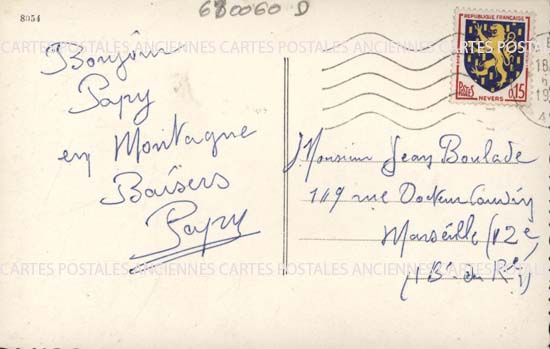 8054
680060 D
CARTES POSTALES ANCIENNES CARTES POSTALES ANCIENNES CARTES POSTALES
REPUBLIQUE FRANÇAISE
POSTES
0,15
NEVERS
18
19
Bonjour
Papy
en Montagne
Baisers
Papy
Monsieur Jean Boulade
119 rue Docteur
Marseille (12e)
(B. du R.)
CARTES POSTALES ANCIENNES CARTES POSTALES ANCIENNES CARTES POSTALES